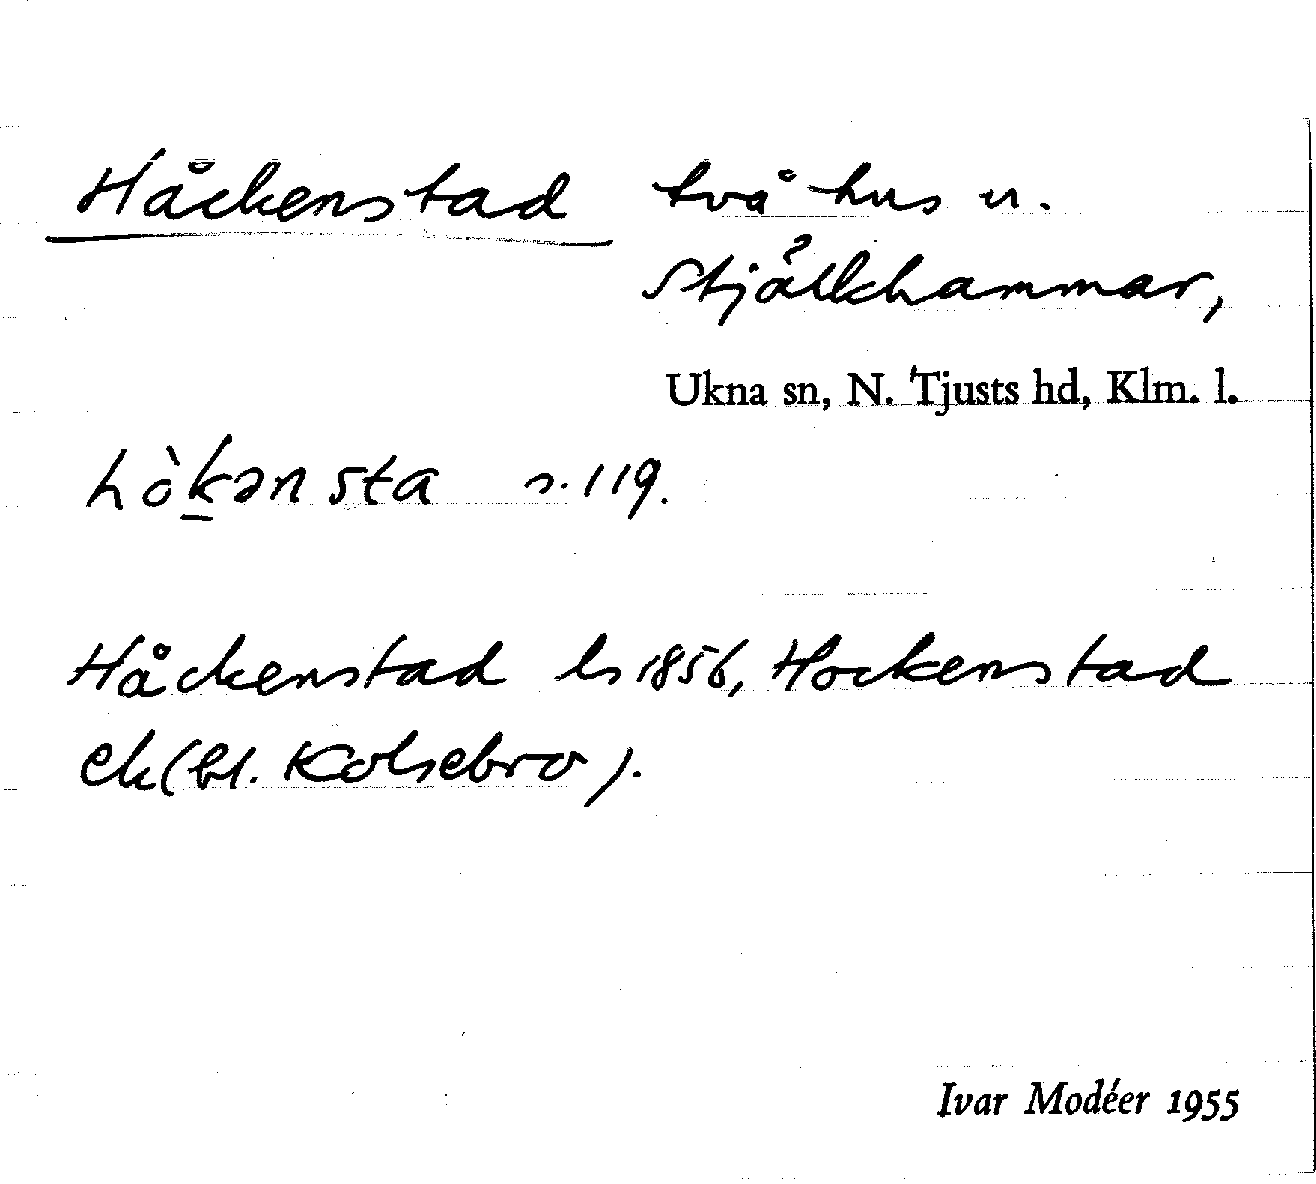 Håckenstad två hus u.
Stjälkhammar,
Ukna sn, N. Tjusts hd, Klm. l.
hòk̠ənsta s. 119.
Håckenstad ls 1856, Hockenstad
ek (bl. Kolsebro).
Ivar Modéer 1955